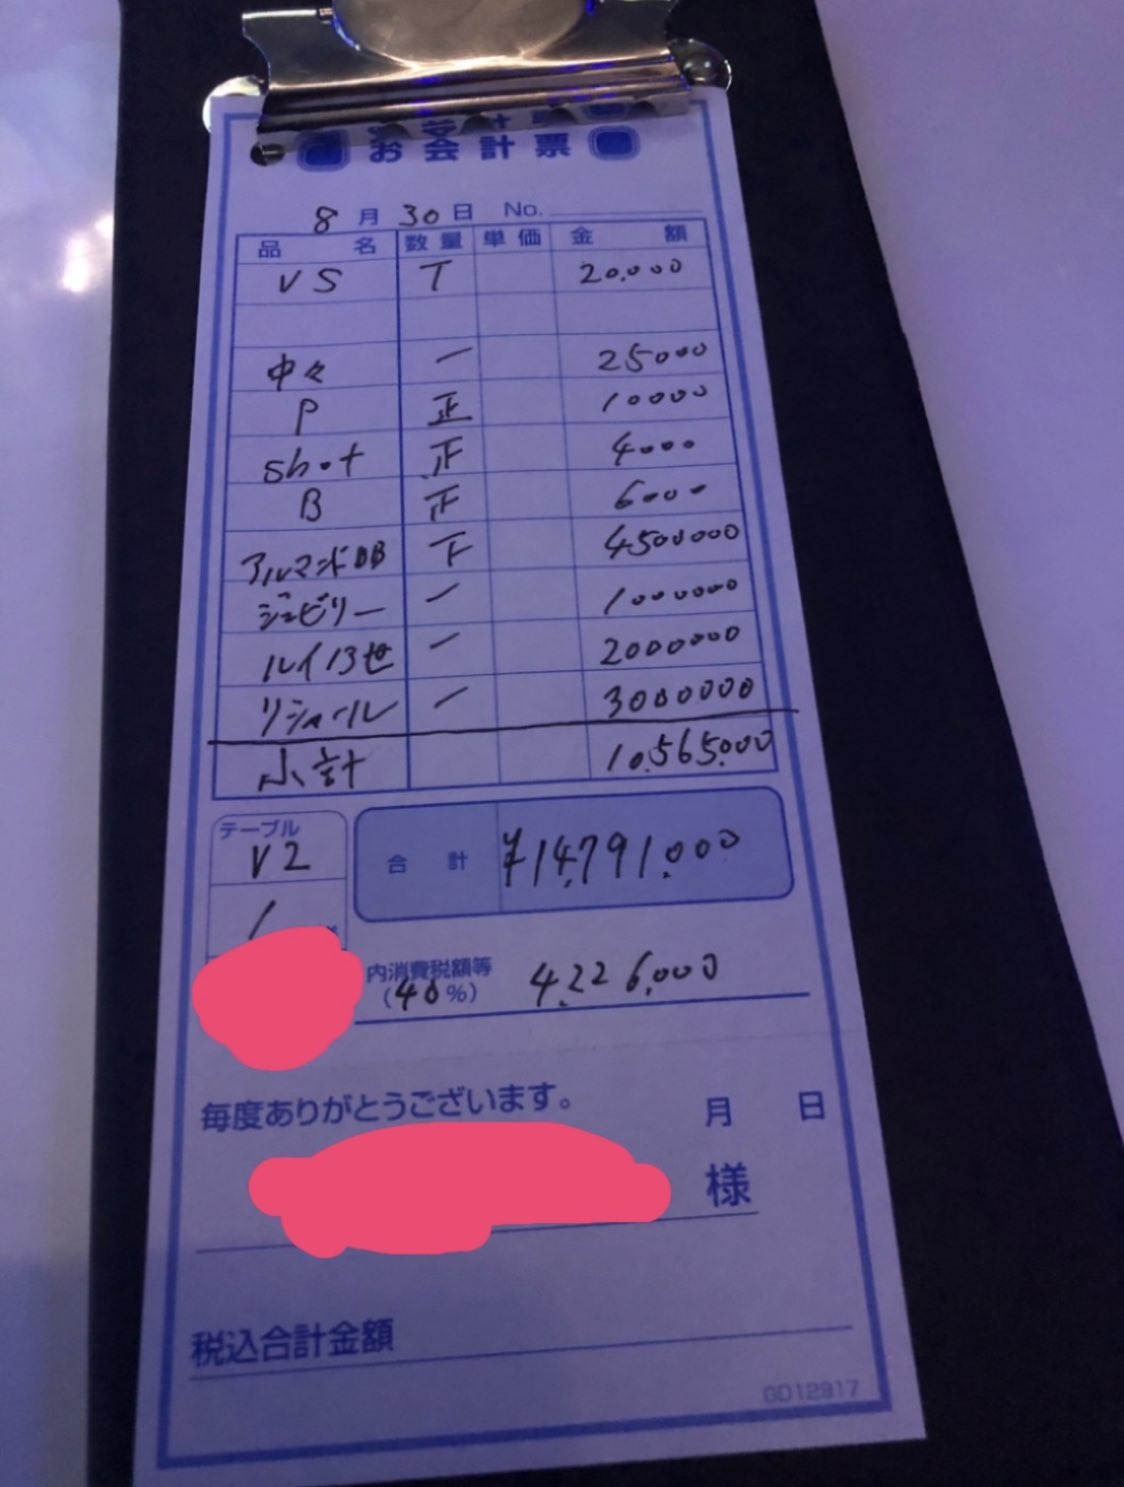 お会計票
8月30日 No.
品名 数量 単価 金額
VS T 20,000
中々 一 25000
P 正 10000
shot 正 4000
B 正 6000
アルマンドBB 下 4500000
ジュビリー 一 1000000
ルイ13世 一 2000000
リシャール 一 3000000
小計 10,565,000
テーブル
V2
合計 ¥14,791,000
/
内消費税額等
(40%) 4,226,000
毎度ありがとうございます。
月 日
様
税込合計金額
GD12917